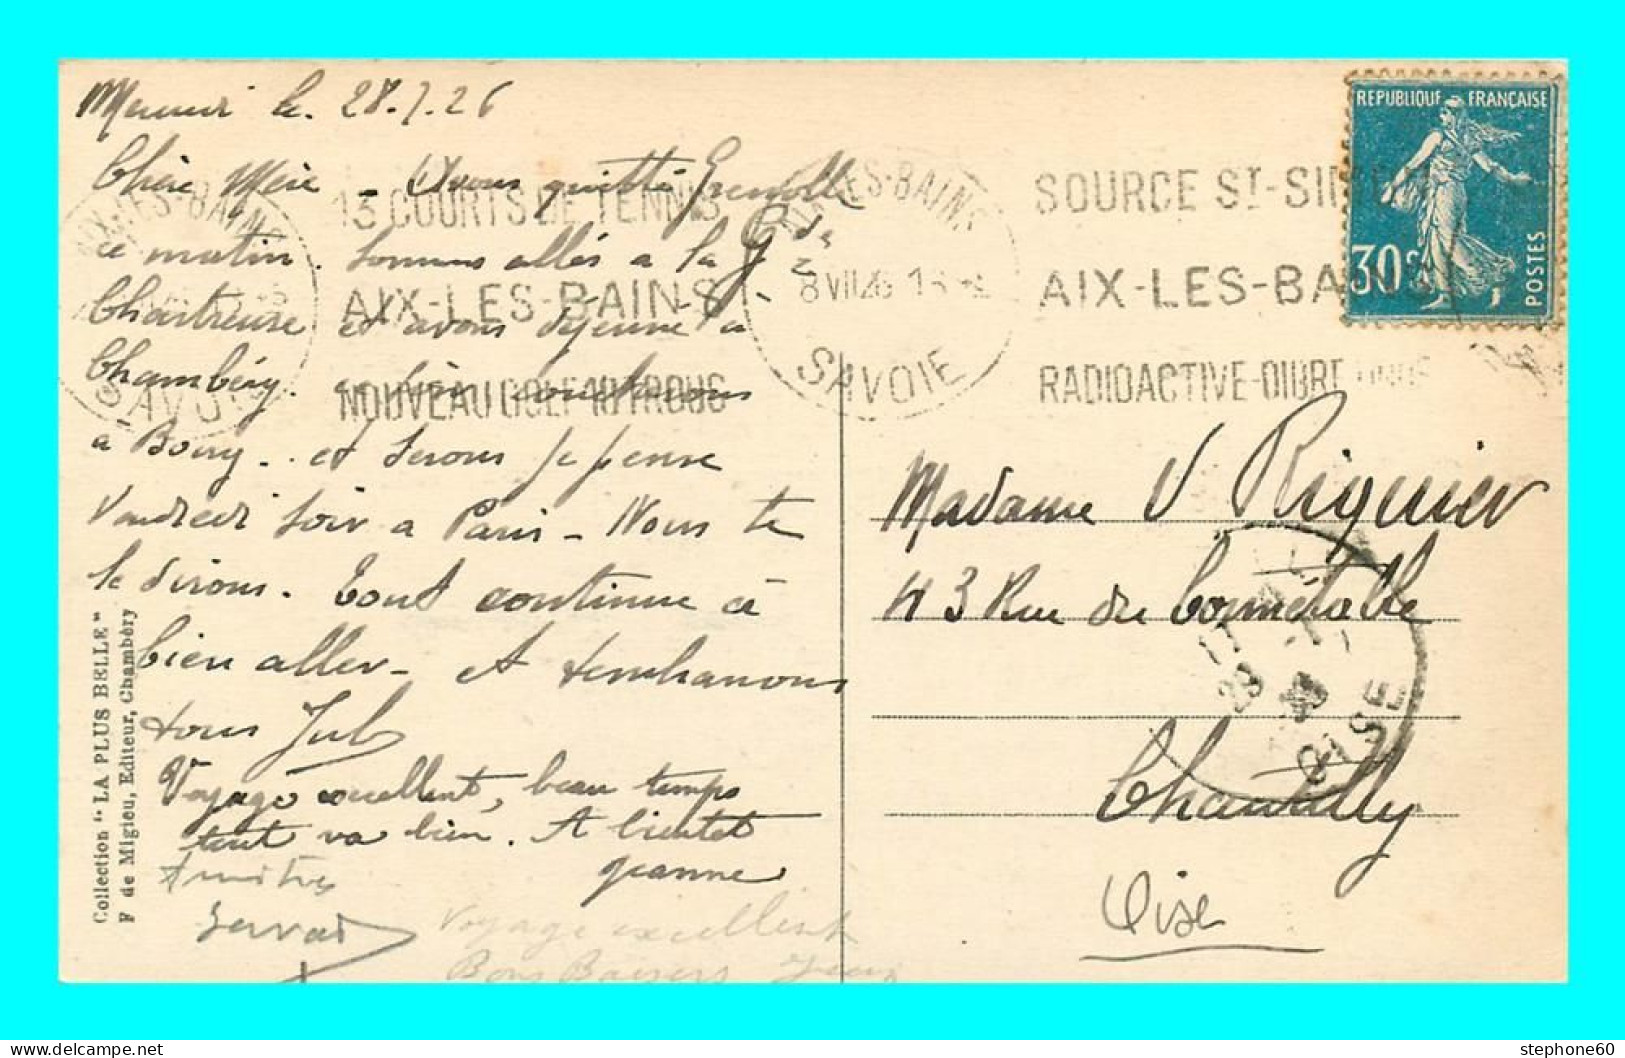 le 28.7.26
Chère Mère - Avons quitté Grenoble
ce matin. Sommes allés à la Gde
Chartreuse et avons déjeuné à
Chambéry. coucherons
à Bourg.. et serons je pense
Vendredi soir à Paris - Nous te
le dirons. Tout continue à
bien aller - et t'embrassons
tous
Voyage excellent, beau temps
tout va bien. A bientôt
Jeanne
Amitiés
Voyage excellent
Bons Baisers
Collection "LA PLUS BELLE"
F de Migieu, Editeur, Chambéry
AIX-LES-BAINS
SAVOIE
13 COURTS DE TENNIS
AIX-LES-BAINS
NOUVEAU GOLF 18 TROUS
AIX-LES-BAINS
SAVOIE
SOURCE ST-SI
AIX-LES-BAINS
RADIOACTIVE-DIURETIQUE
REPUBLIQUE FRANÇAISE
30c
POSTES
Madame V Riquier
43 Rue du Connétable
Chantilly
Oise
OISE
stephone60